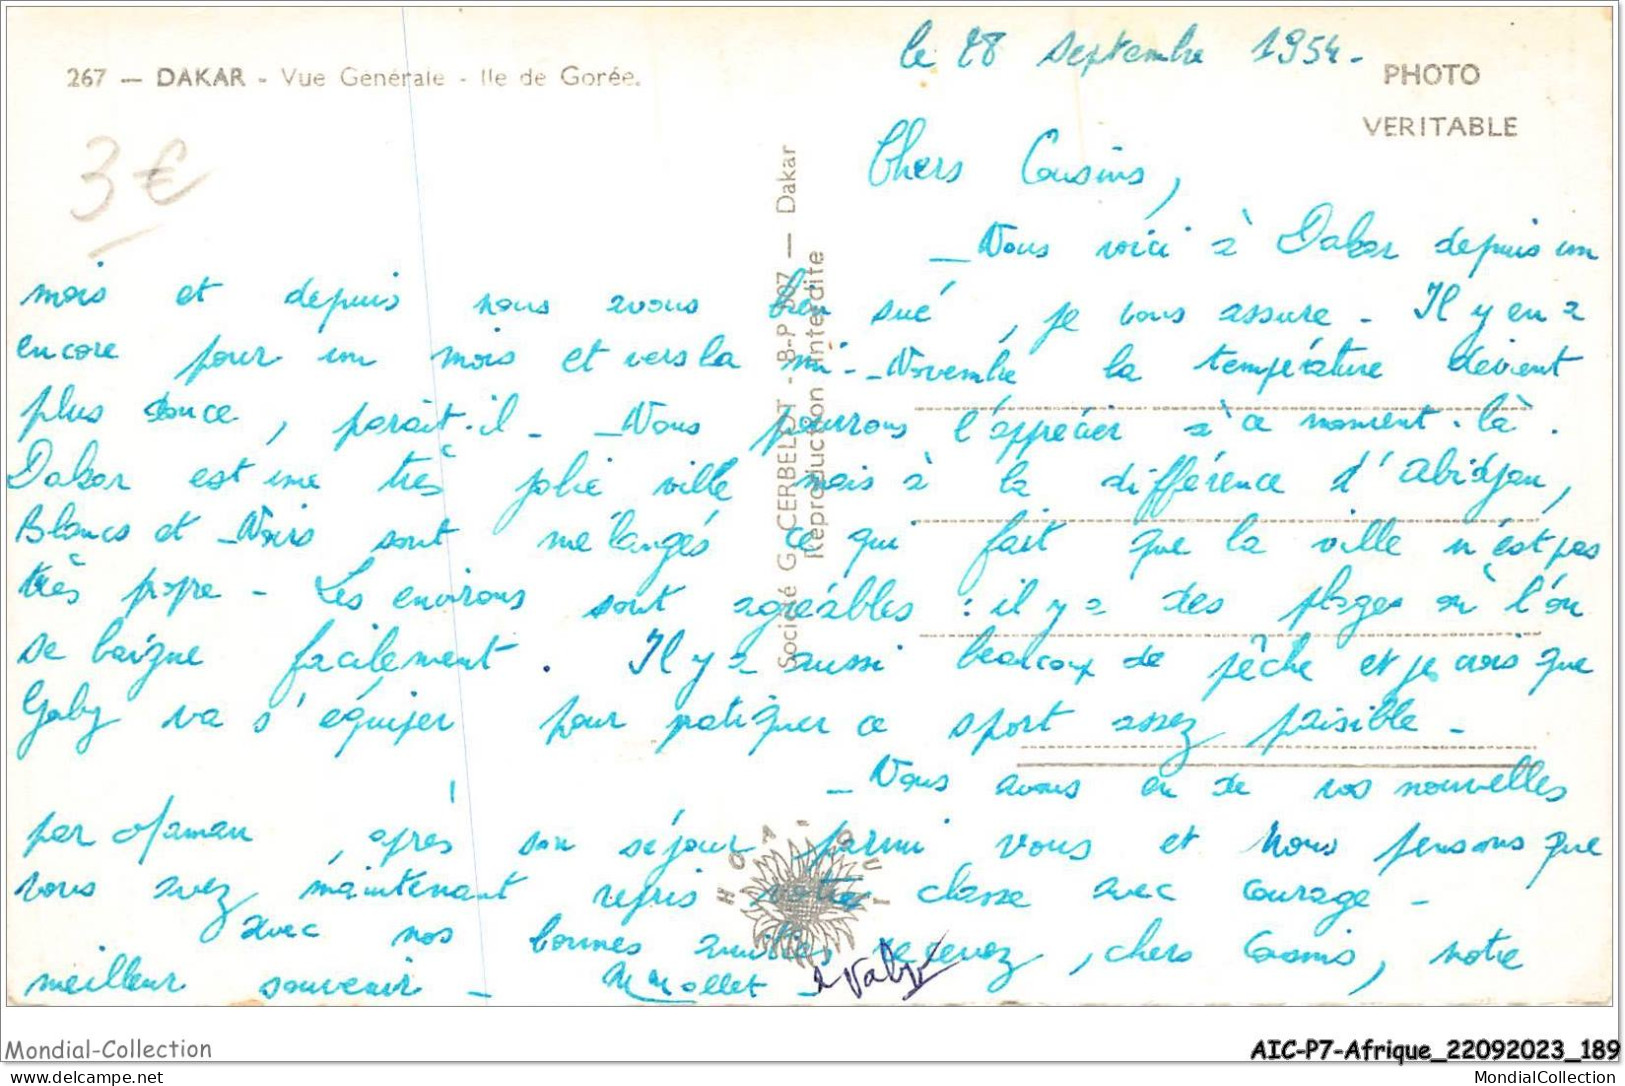 267 — DAKAR - Vue Générale - Ile de Gorée.
PHOTO
VERITABLE
3 €
le 28 septembre 1954 -
Chers Cousins,
Nous voici à Dakar depuis un
mois et depuis nous avons bien sué, je vous assure - Il y en a
encore pour un mois et vers la mi-Novembre la température devient
plus douce, paraît-il - Nous pourrons l'apprécier à ce moment-là.
Dakar est une très jolie ville mais à la différence d'Abidjan,
Blancs et Noirs sont mélangés ce qui fait que la ville n'est pas
très propre - Les environs sont agréables : il y a des plages où l'on
se baigne facilement. Il y a aussi beaucoup de pêche et je crois que
Gaby va s'équiper pour pratiquer ce sport assez paisible -
Nous avons eu de vos nouvelles
par Maman, après son séjour parmi vous et nous pensons que
vous avez maintenant repris votre classe avec courage -
Avec nos bonnes amitiés recevez, chers Cousins, notre
meilleur souvenir -
Société G. CERBELOT - B-P 507 — Dakar
Reproduction Interdite
Mondial-Collection
AIC-P7-Afrique_22092023_189
delcampe.net
MondialCollection